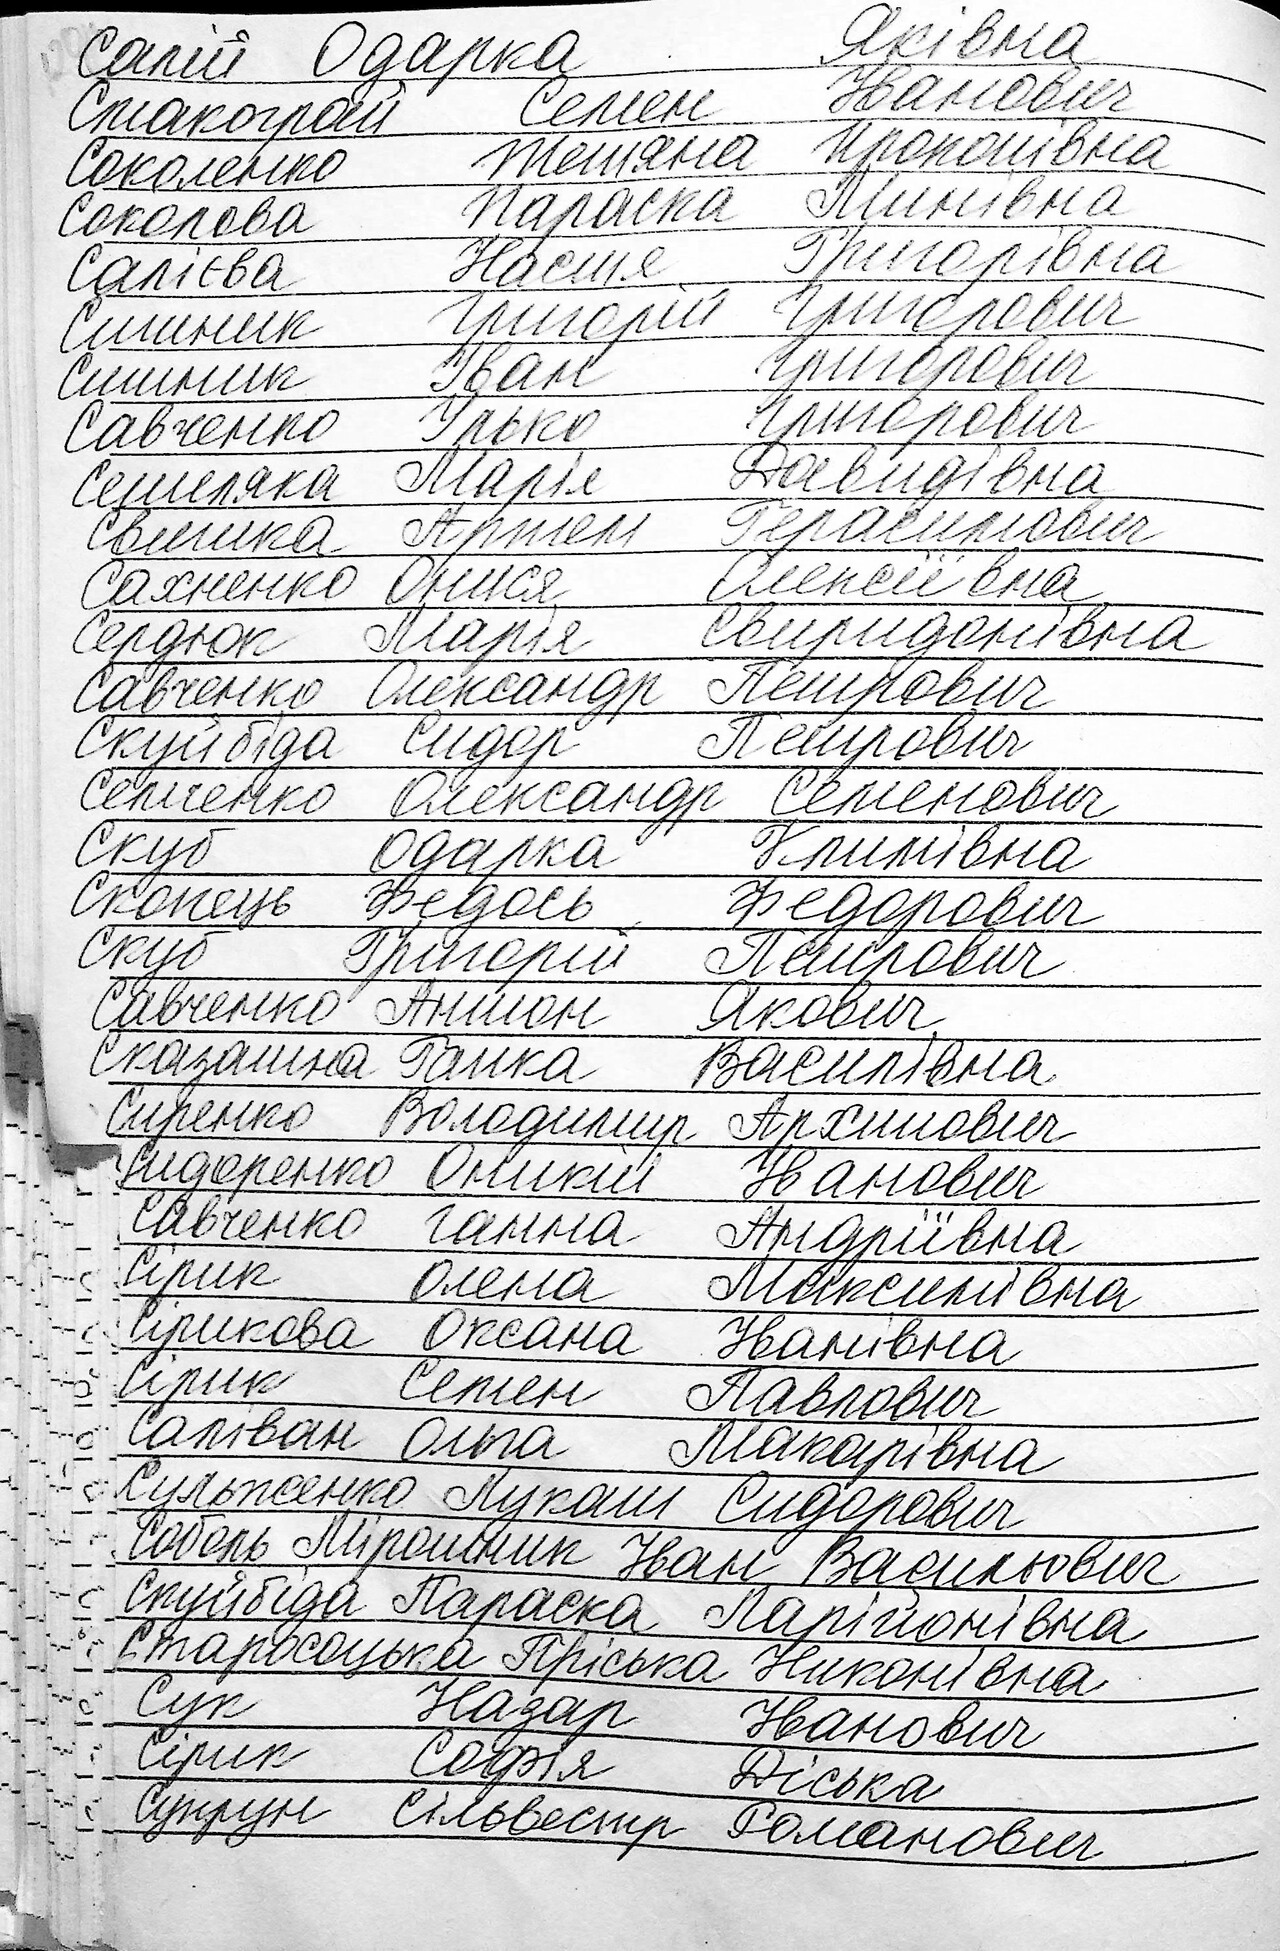 Салій Одарка Яківна
Стакограй Семен Іванович
Соколенко Тетяна Прокопівна
Соколова Параска Минівна
Салієва Настя Григорівна
Ситник Григорій Григорович
Ситник Іван Григорович
Савченко Улько Григорович
Семеляка Марія Давидівна
Свитка Артем Герасимович
Сахненко Онися Олексіївна
Сердюк Марія Свиридонівна
Савченко Олександр Петрович
Скуйбіда Сидор Петрович
Семченко Олександр Семенович
Скуб Одарка Климівна
Скопець Федось Федорович
Скуб Григорій Петрович
Савченко Антон Якович
Сказатина Галка Василівна
Сиренко Володимир Архипович
Сидоренко Оникій Іванович
Савченко Ганна Андріївна
Сірик Олена Максимівна
Сірикова Оксана Іванівна
Сірик Семен Павлович
Саліван Ольга Макарівна
Сульженко Лукаш Сидорович
Соболь Мірошник Іван Васильович
Скуйбіда Параска Ларійонівна
Старосоцька Пріська Никонівна
Сук Назар Іванович
Сірик Софія Діська
Супрун Сільвестр Романович